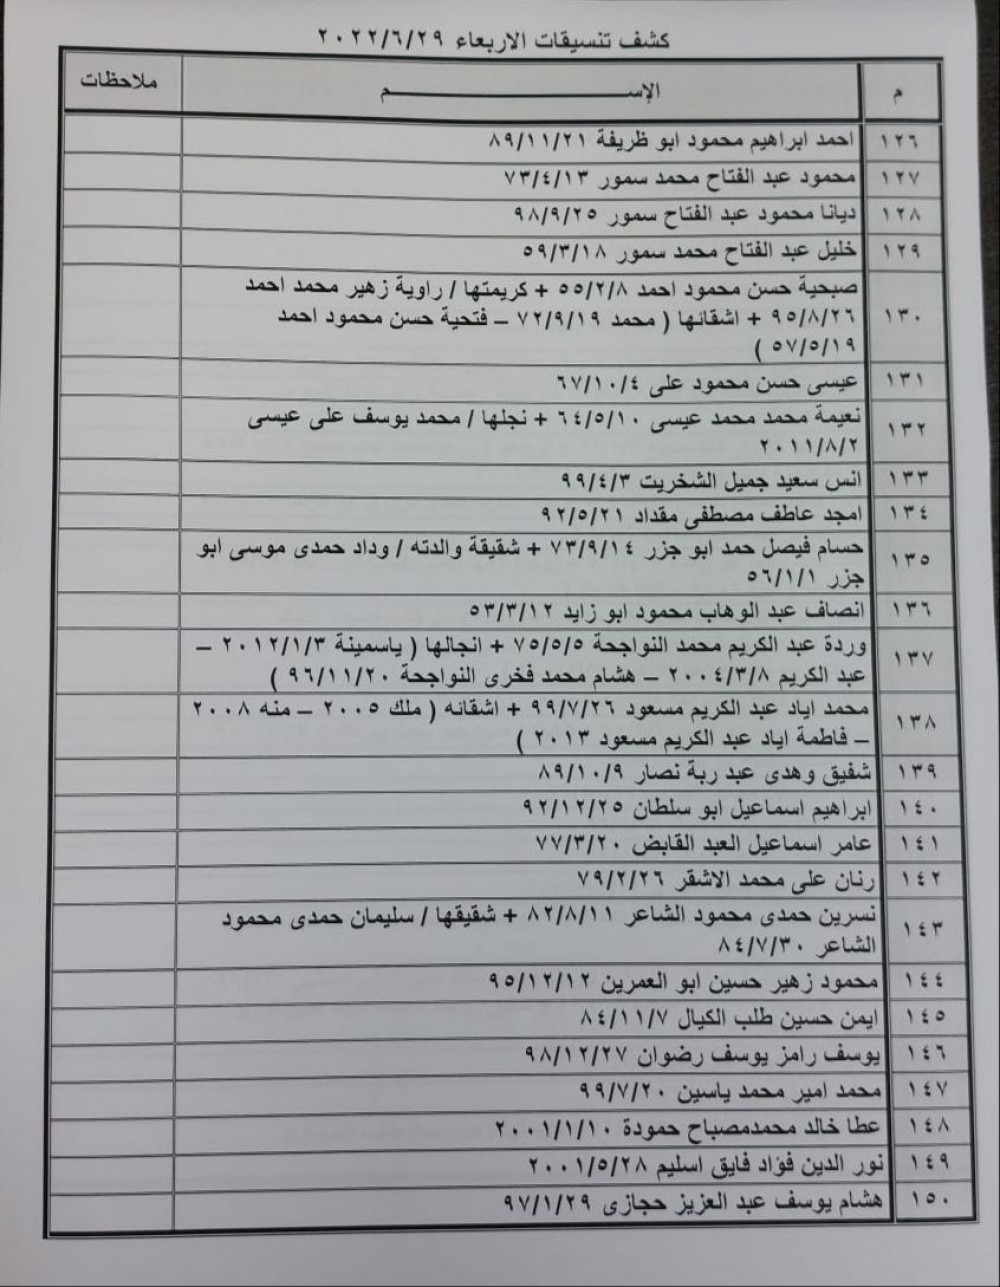 كشف تنسيقات الاربعاء ٢٠٢٢/٦/٢٩
م الإســـــم ملاحظات
١٢٦ احمد ابراهيم محمود ابو ظريفة ٨٩/١١/٢١
١٢٧ محمود عبد الفتاح محمد سمور ٧٣/٤/١٣
١٢٨ ديانا محمود عبد الفتاح سمور ٩٨/٩/٢٥
١٢٩ خليل عبد الفتاح محمد سمور ٥٩/٣/١٨
١٣٠ صبحية حسن محمود احمد ٥٥/٢/٨ + كريمتها / راوية زهير محمد احمد
٩٥/٨/٢٦ + اشقائها ( محمد ٧٢/٩/١٩ – فتحية حسن محمود احمد
٥٧/٥/١٩ )
١٣١ عيسى حسن محمود على ٦٧/١٠/٤
١٣٢ نعيمة محمد محمد عيسى ٦٤/٥/١٠ + نجلها / محمد يوسف على عيسى
٢٠١١/٨/٢
١٣٣ انس سعيد جميل الشخريت ٩٩/٤/٣
١٣٤ امجد عاطف مصطفى مقداد ٩٢/٥/٢١
١٣٥ حسام فيصل حمد ابو جزر ٧٣/٩/١٤ + شقيقة والدته / وداد حمدى موسى ابو
جزر ٥٦/١/١
١٣٦ انصاف عبد الوهاب محمود ابو زايد ٥٣/٣/١٢
١٣٧ وردة عبد الكريم محمد النواجحة ٧٥/٥/٥ + انجالها ( ياسمينة ٢٠١٢/١/٣ –
عبد الكريم ٢٠٠٤/٣/٨ – هشام محمد فخرى النواجحة ٩٦/١١/٢٠ )
١٣٨ محمد اياد عبد الكريم مسعود ٩٩/٧/٢٦ + اشقائه ( ملك ٢٠٠٥ – منه ٢٠٠٨
– فاطمة اياد عبد الكريم مسعود ٢٠١٣ )
١٣٩ شفيق وهدى عبد ربة نصار ٨٩/١٠/٩
١٤٠ ابراهيم اسماعيل ابو سلطان ٩٢/١٢/٢٥
١٤١ عامر اسماعيل العبد القابض ٧٧/٣/٢٠
١٤٢ رنان على محمد الاشقر ٧٩/٢/٢٦
١٤٣ نسرين حمدى محمود الشاعر ٨٢/٨/١١ + شقيقها / سليمان حمدى محمود
الشاعر ٨٤/٧/٣٠
١٤٤ محمود زهير حسين ابو العمرين ٩٥/١٢/١٢
١٤٥ ايمن حسين طلب الكيال ٨٤/١١/٧
١٤٦ يوسف رامز يوسف رضوان ٩٨/١٢/٢٧
١٤٧ محمد امير محمد ياسين ٩٩/٧/٢٠
١٤٨ عطا خالد محمدمصباح حمودة ٢٠٠١/١/١٠
١٤٩ نور الدين فؤاد فايق اسليم ٢٠٠١/٥/٢٨
١٥٠ هشام يوسف عبد العزيز حجازى ٩٧/١/٢٩